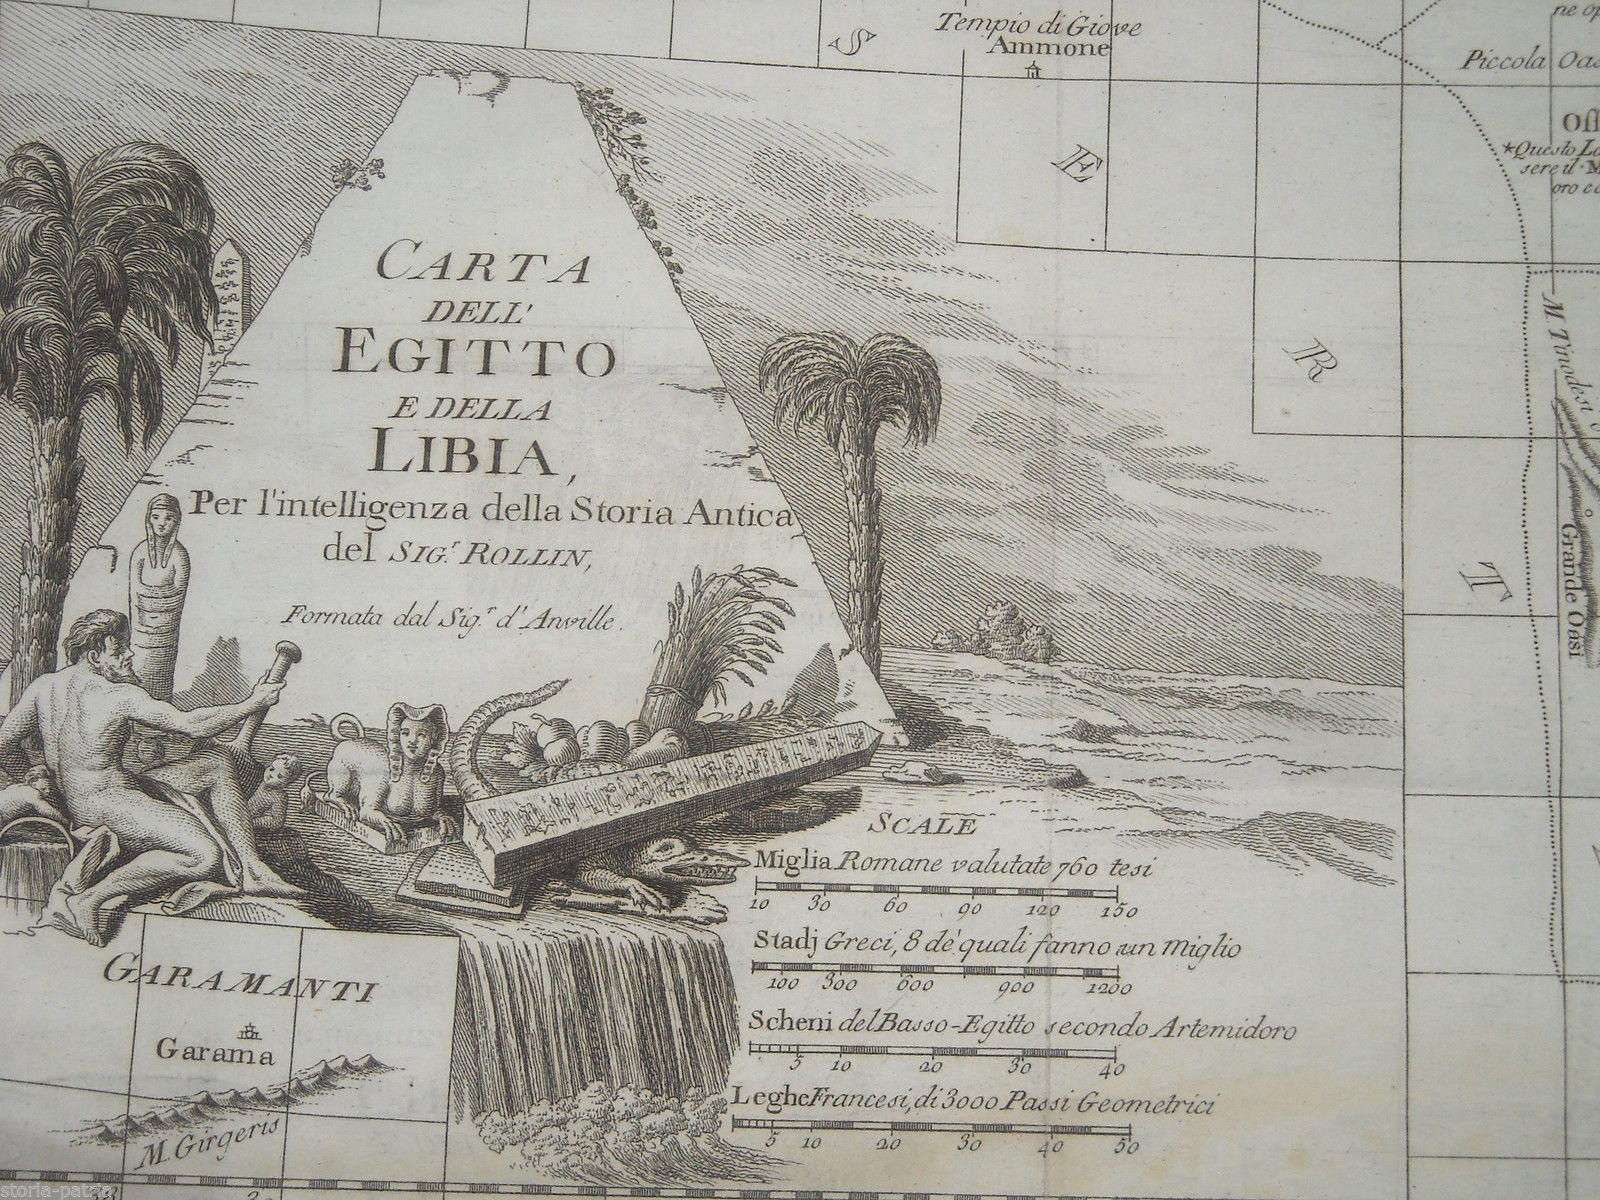 Tempio di Giove
Ammone
S
E
R
T
Piccola Oas
ne op
Off
*Questo Lo
sere il M
oro e
CARTA
DELL'
EGITTO
E DELLA
LIBIA,
Per l'intelligenza della Storia Antica
del SIG.r ROLLIN,
Formata dal Sig.r d'Anville.
Grande Oasi
SCALE
Miglia Romane valutate 760 tesi
10 30 60 90 120 150
Stadj Greci, 8 de' quali fanno un miglio
100 300 600 900 1200
Scheni del Basso-Egitto secondo Artemidoro
5 10 20 30 40
Leghe Francesi, di 3000 Passi Geometrici
5 10 20 30 40 50
GARAMANTI
Garama
M. Girgeris